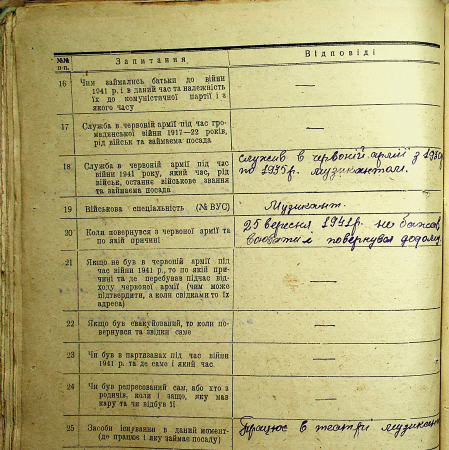 №№ п-п.
Запитання
Відповіді
16 Чим займались батьки до війни
1941 р. і в даний час та належність
їх до комуністичної партії і з
якого часу
—
17 Служба в червоній армії під час гро-
мадянської війни 1917—22 років,
рід військ та займаєма посада
—
18 Служба в червоній армії під час
війни 1941 року, який час, рід
військ, останнє військове звання
та займаєма посада
служив в червоній армії з
по 1935 р. музикантом.
19 Військова спеціальність (№ ВУС)
Музикант.
20 Коли повернувся з червоної армії та
по якій причині
25 вересня 1941 р. не бажав
воювати і повернувся додому.
21 Якщо не був в червоній армії під
час війни 1941 р., то по якій при-
чині та де перебував підчас від-
ходу червоної армії (чим може
підтвердити, а коли свідками то їх
адреса)
—
22 Якщо був евакуйований, то коли по-
вернувся та звідки саме
—
23 Чи був в партизанах під час війни
1941 р. та де саме і який час
—
24 Чи був репресований сам, або хто з
родичів, коли і защо, яку мав
кару та чи відбув її
—
25 Засоби існування в даний момент-
(де працює і яку займає посаду)
Працює в театрі музикант